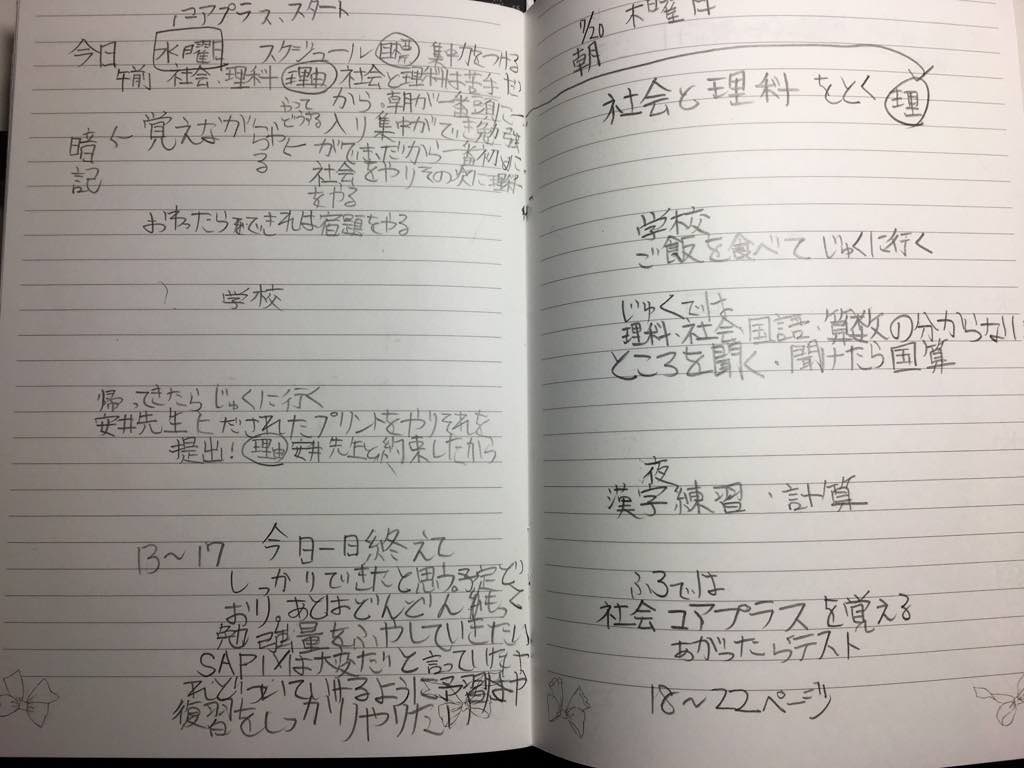 コアプラス、スタート
今日 水曜日 スケジュール 集中力をつける
午前 社会・理科 理由 社会と理科は苦手だ
から、朝から一番頭に
やって
どうする
入り集中ができ
暗く覚えながらやる
記
がでだから一番初めに
社会をやりその次に理科
をやる
おわったらできれば宿題をやる
学校
帰ってきたらじゅくに行く
安井先生にだされたプリントをやりそれを
提出! 理由 安井先生と約束したから
13〜17 今日一日終えて
しっかりできたと思う。予定ど
おり,あとはどんどん
勉強量をふやしていきたい
SAPIXは大変だと言っていたけ
れどついていけるように予習はや
復習をしっかりやりたい
7/20 木曜日
朝
社会と理科をとく 理
学校
ご飯を食べてじゅくに行く
じゅくでは
理科・社会・国語・算数の分からない
ところを聞く・聞けたら国算
夜
漢字練習・計算
ふろでは
社会コアプラスを覚える
あがったらテスト
18〜22ページ